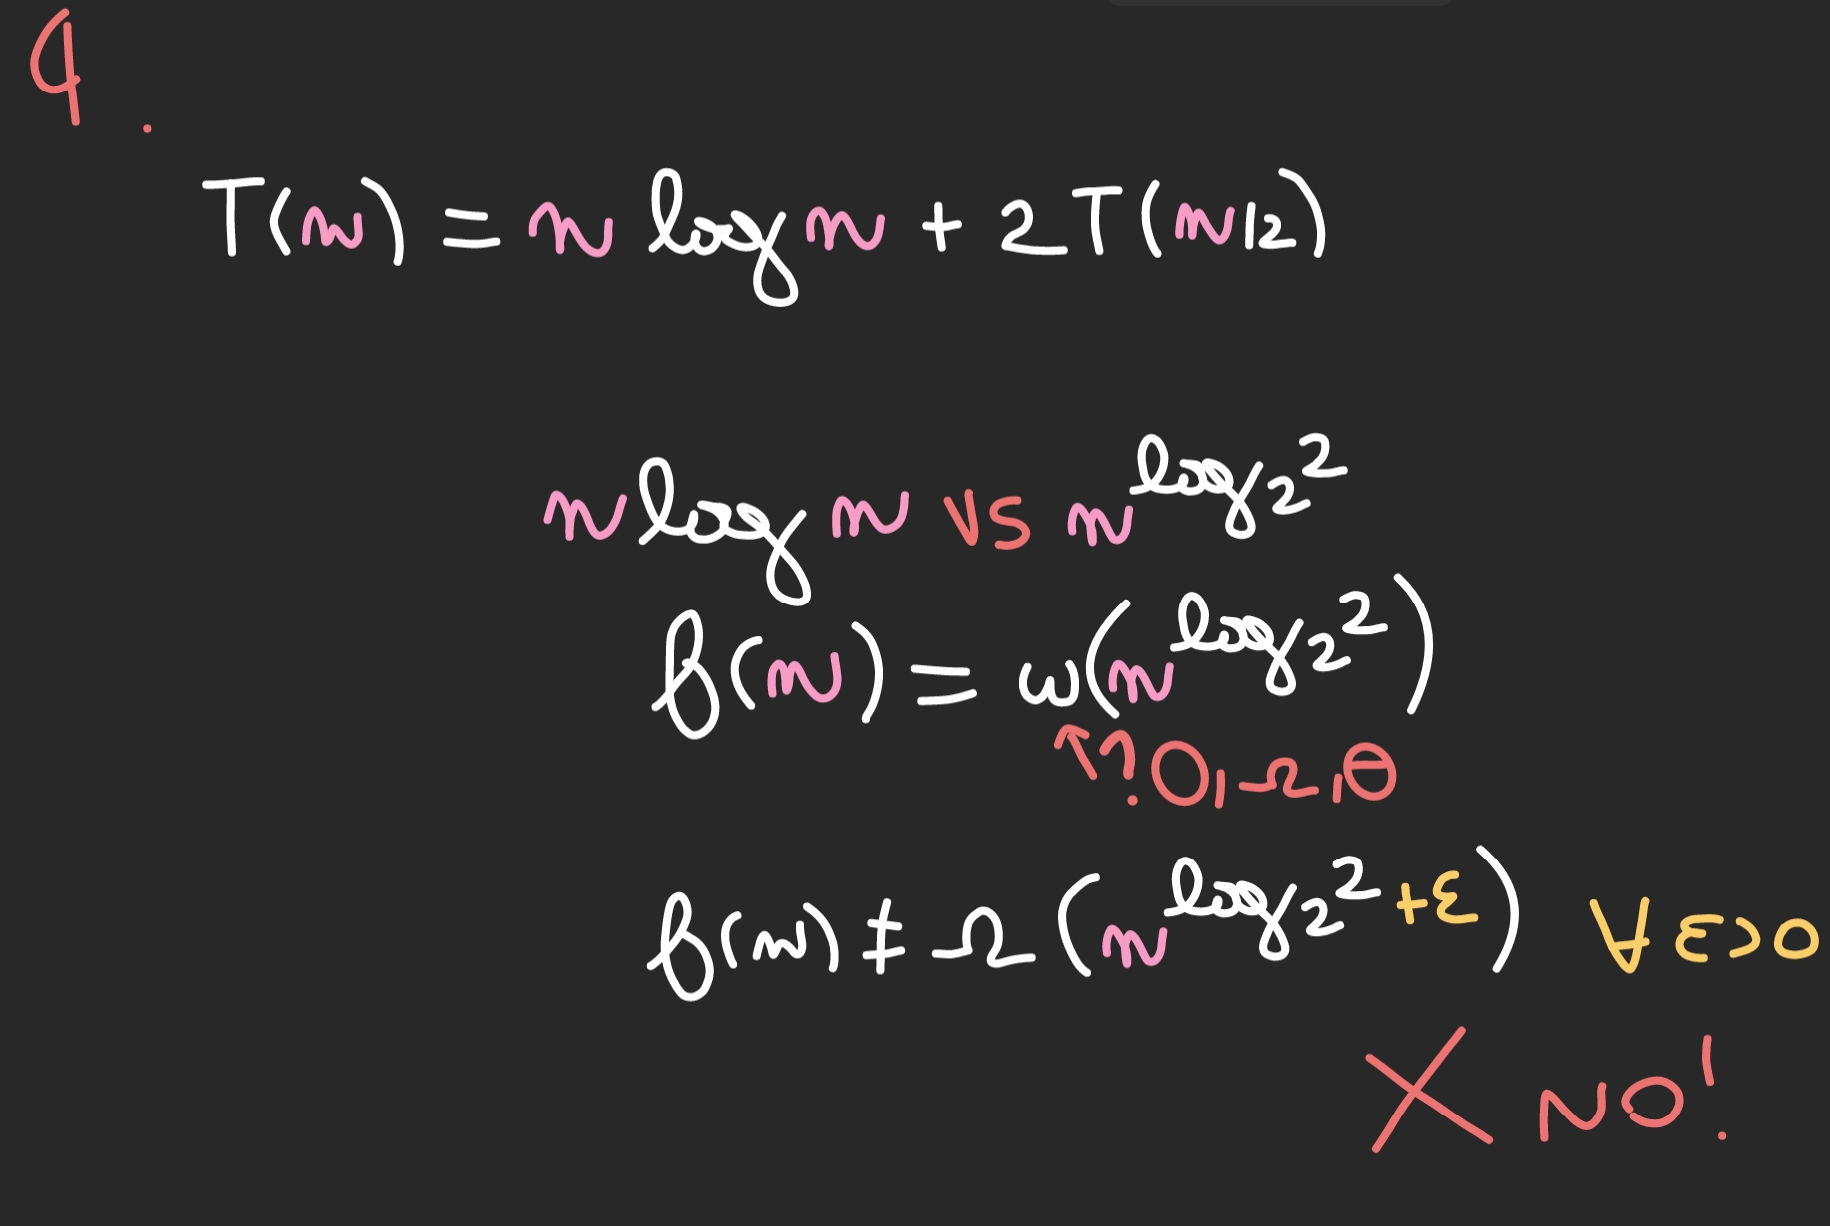 4.
T(n) = n log n + 2T(n/2)
n log n vs n^{log_2 2}
f(n) = ω(n^{log_2 2})
↑? O, Ω, Θ
f(n) ≠ Ω(n^{log_2 2 + ε}) ∀ ε>0
X NO!